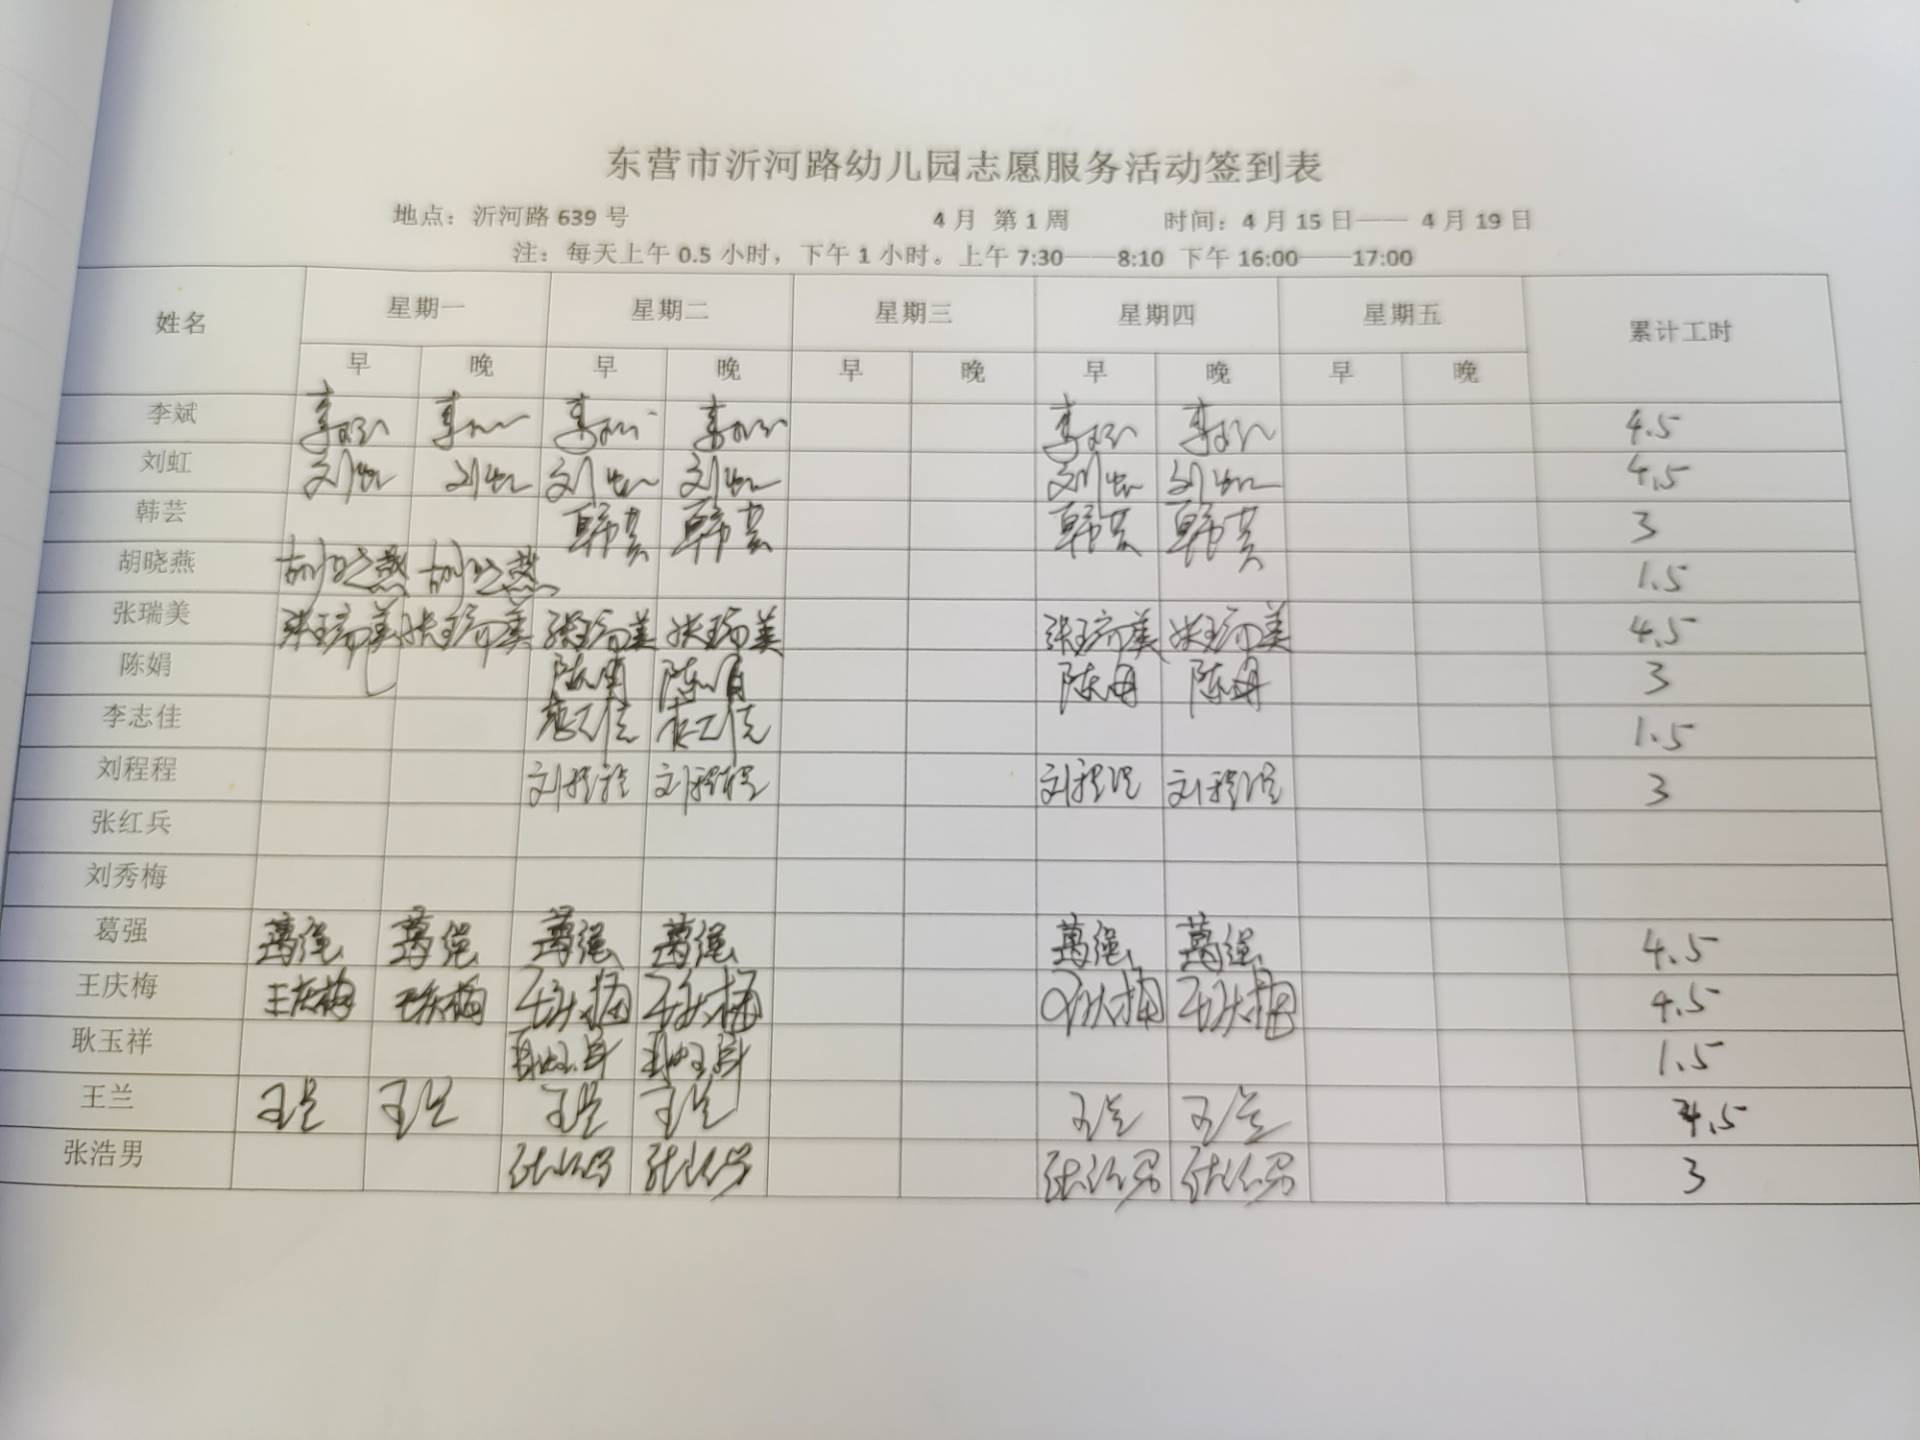 东营市沂河路幼儿园志愿服务活动签到表
地点：沂河路 639 号 4 月 第 1 周 时间：4 月 15 日—— 4 月 19 日
注：每天上午 0.5 小时，下午 1 小时。上午 7:30——8:10 下午 16:00——17:00
姓名 星期一 星期二 星期三 星期四 星期五 累计工时
早 晚 早 晚 早 晚 早 晚 早 晚
李斌 李斌 李斌 李斌 李斌 李斌 李斌 4.5
刘虹 刘虹 刘虹 刘虹 刘虹 刘虹 刘虹 4.5
韩芸 韩芸 韩芸 韩芸 韩芸 3
胡晓燕 胡晓燕 胡晓燕 1.5
张瑞美 张瑞美 张瑞美 张瑞美 张瑞美 张瑞美 张瑞美 4.5
陈娟 陈娟 陈娟 陈娟 陈娟 3
李志佳 李志佳 李志佳 1.5
刘程程 刘程程 刘程程 刘程程 刘程程 3
张红兵
刘秀梅
葛强 葛强 葛强 葛强 葛强 葛强 葛强 4.5
王庆梅 王庆梅 王庆梅 王庆梅 王庆梅 王庆梅 王庆梅 4.5
耿玉祥 耿玉祥 耿玉祥 1.5
王兰 王兰 王兰 王兰 王兰 王兰 王兰 4.5
张浩男 张浩男 张浩男 张浩男 张浩男 3